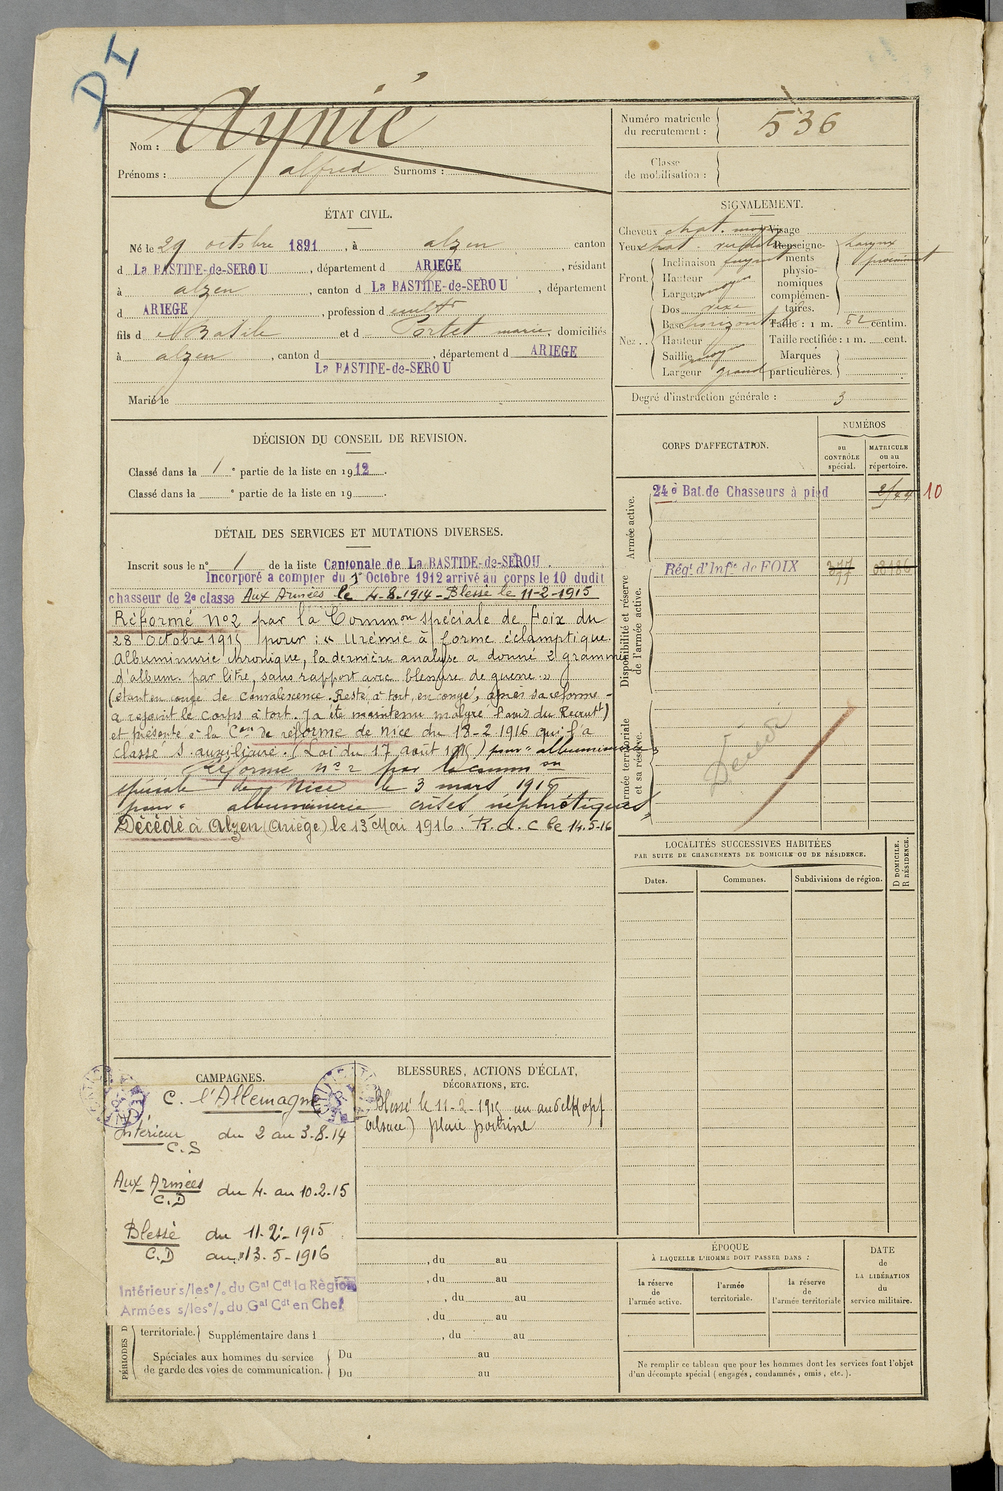 DI
Nom : Aynié
Prénoms : alfred Surnoms :
Numéro matricule du recrutement : 536
Classe de mobilisation :
ÉTAT CIVIL.
Né le 29 octobre 1891, à alzen canton
d La BASTIDE-de-SEROU, département d ARIEGE, résidant
à alzen, canton d La BASTIDE-de-SEROU, département
d ARIEGE, profession de cultr
fils d e Basile et d Portet marie, domiciliés
à alzen, canton d , département d ARIEGE
La BASTIDE-de-SEROU
Marié le
SIGNALEMENT.
Cheveux chat. moy Visage
Yeux chat
Renseignements physionomiques complémentaires. larynx proéminent
Front
Inclinaison fuyant
Hauteur moy
Largeur moyen
Nez
Dos vexe
Base horizont
Hauteur
Saillie moy
Largeur grand
Taille : 1 m. 62 centim.
Taille rectifiée : 1 m. cent.
Marques particulières.
Degré d'instruction générale : 3
DÉCISION DU CONSEIL DE REVISION.
Classé dans la 1e partie de la liste en 1912.
Classé dans la e partie de la liste en 19 .
DÉTAIL DES SERVICES ET MUTATIONS DIVERSES.
Inscrit sous le n° 1 de la liste Cantonale de La BASTIDE-de-SEROU.
Incorporé a compter du 1er Octobre 1912 arrivé au corps le 10 dudit
chasseur de 2e classe Aux Armées le 4-8-1914 - Blessé le 11-2-1915
Réformé N°2 par la Common spéciale de Foix du
28 Octobre 1915 pour : « Urémie à forme éclamptique.
albuminurie chronique, la dernière analyse a donné 2 grammes
d'album. par litre, sans rapport avec blessure de guerre. »
(étant en congé de convalescence. Resté à tort, en congé, après sa réforme -
a rejoint le corps à tort. Y a été maintenu malgré l'avis du Recrutt)
et présenté à la Con de réforme de Nice du 18-2-1916 qui l'a
classé S. auxiliaire. (Loi du 17 août 1915) pour « albuminurie »
Réformé n° 2 par la common
spéciale de Nice le 3 mars 1916
pour « albuminurie crises néphrétiques
Décédé à Alzen (Ariège) le 13 Mai 1916. R.d.C le 14.5-16
CORPS D'AFFECTATION.
NUMÉROS
au CONTRÔLE spécial.
MATRICULE ou au répertoire.
Armée active.
24e Bat. de Chasseurs à pied 10
Disponibilité et réserve de l'armée active.
Régt d'Infie de FOIX 377
Armée territoriale et sa réserve.
Décédé
LOCALITÉS SUCCESSIVES HABITÉES
PAR SUITE DE CHANGEMENTS DE DOMICILE OU DE RÉSIDENCE.
Dates.
Communes.
Subdivisions de région.
D DOMICILE.
R RÉSIDENCE.
CAMPAGNES.
C. l'Allemagne
Intérieur du 2 au 3.8.14
C.S
Aux Armées du 4. au 10.2.15
C.D
Blessé du 11-2-1915
C.D au 13.5-1916
Intérieur s/les °/. du Gal Cdt la Région
Armées s/les °/. du Gal Cdt en Chef
BLESSURES, ACTIONS D'ÉCLAT,
DÉCORATIONS, ETC.
Blessé le 11-2-1915
(alsace) plaie poitrine
, du au
, du au
, du au
, du au
PÉRIODES D
territoriale. Supplémentaire dans l , du au
Spéciales aux hommes du service de garde des voies de communication.
Du au
Du au
ÉPOQUE
À LAQUELLE L'HOMME DOIT PASSER DANS :
la réserve de l'armée active.
l'armée territoriale.
la réserve de l'armée territoriale
DATE de LA LIBÉRATION du service militaire.
Ne remplir ce tableau que pour les hommes dont les services font l'objet
d'un décompte spécial (engagés, condamnés, omis, etc.).